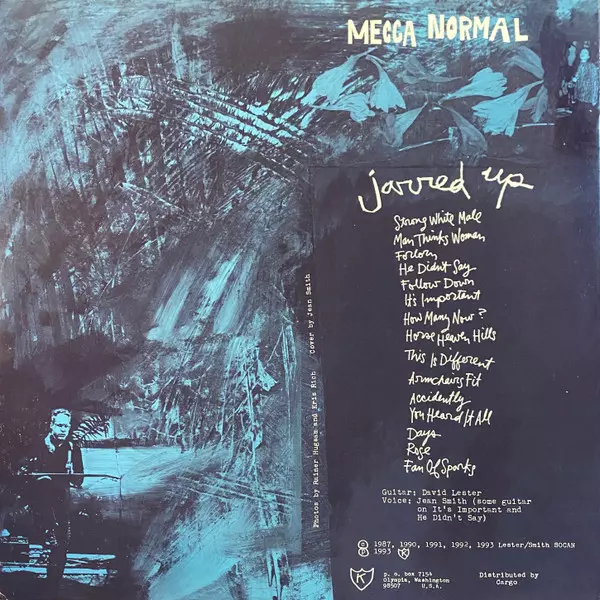 MECCA NORMAL
jarred up
Strong White Male
Man Thinks Woman
Forlorn
He Didn't Say
Follow Down
It's Important
How Many Now?
Horse Heaven Hills
This Is Different
Armchairs Fit
Accidently
You Heard It All
Days
Rose
Fan Of Sparks
Photos by Rainer Hugman and Kris Rich Cover by Jean Smith
Guitar: David Lester
Voice: Jean Smith (some guitar
on It's Important and
He Didn't Say)
Ⓒ 1987, 1990, 1991, 1992, 1993 Lester/Smith SOCAN
Ⓟ 1993 K
K
p. o. box 7154
Olympia, Washington
98507 U.S.A.
Distributed by
Cargo